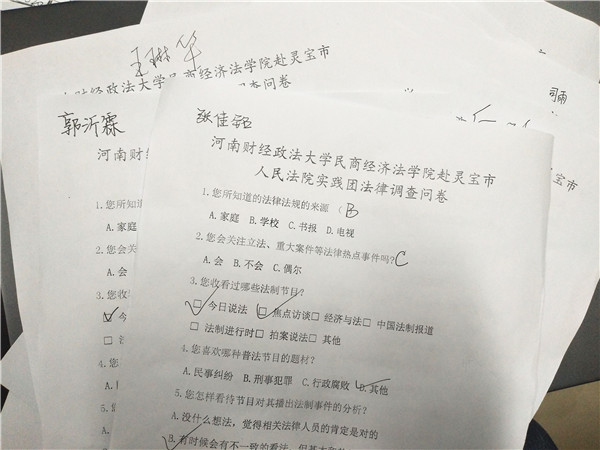 王琳华
财经政法大学民商经济法学院赴灵宝市
调查问卷
司雨
郭沂霖
河南财经
1.您所知道
A.家庭
2.您会关
A.会
3.您收
☑ 今
□
4.您
A.
5.
A.
张佳
河南财经政法大学民商经济法学院赴灵宝市
人民法院实践团法律调查问卷
1.您所知道的法律法规的来源 (B
A.家庭 B.学校 C.书报 D.电视
2.您会关注立法、重大案件等法律热点事件吗?C
A.会 B.不会 C.偶尔
3.您收看过哪些法制节目?
☑ 今日说法 ☑ 焦点访谈□ 经济与法□ 中国法制报道
□ 法制进行时□ 拍案说法□ 其他
4.您喜欢哪种普法节目的题材?
A.民事纠纷 B.刑事犯罪 C.行政腐败 D.其他
5.您怎样看待节目对其播出法制事件的分析?
A.没什么想法,觉得相关法律人员的肯定是对的
B.有时候会有不一致的看法,但基本和